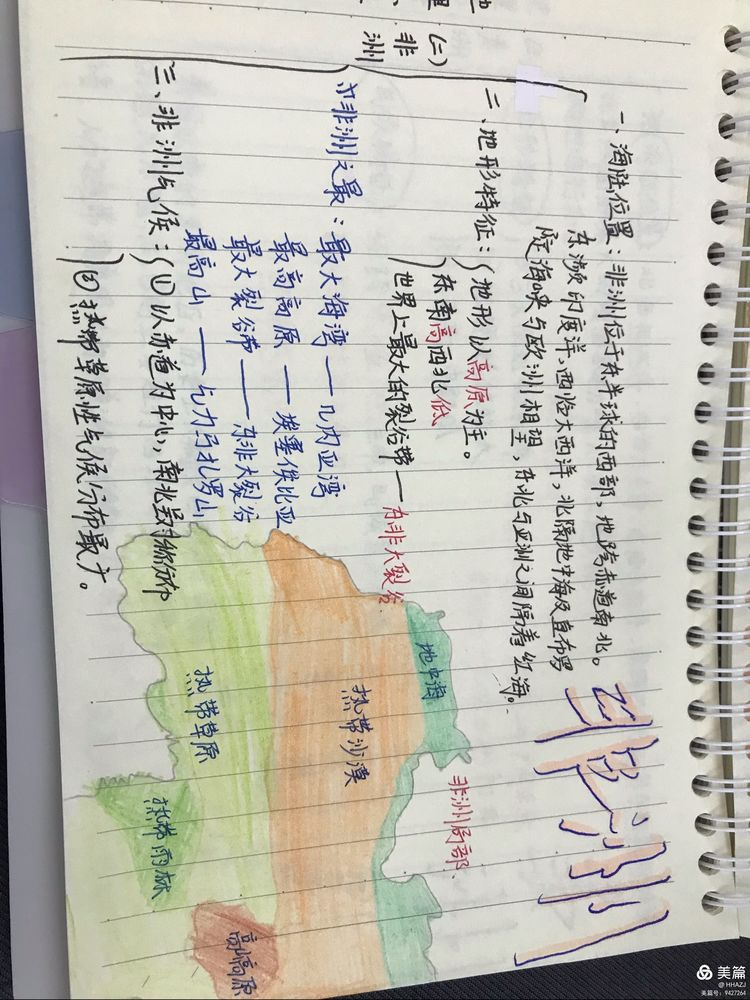 (二)
非洲
非洲
一、海陆位置:非洲位于东半球的西部,地跨赤道南北。
东濒印度洋,西临大西洋,北隔地中海及直布罗
陀海峡与欧洲相望,东北与亚洲之间隔着红海。
二、地形特征:地形以高原为主。
东南高西北低
世界上最大的裂谷带——东非大裂谷
非洲之最:最大海湾——几内亚湾
最高高原——埃塞俄比亚
最大裂谷带——东非大裂谷
最高山——乞力马扎罗山
三、非洲气候:①以赤道为中心,南北对称分布
②热带草原性气候分布最广。
非洲局部
地中海
热带沙漠
热带草原
热带雨林
高山高原
美篇
@HHAZJ
美篇号:9427264